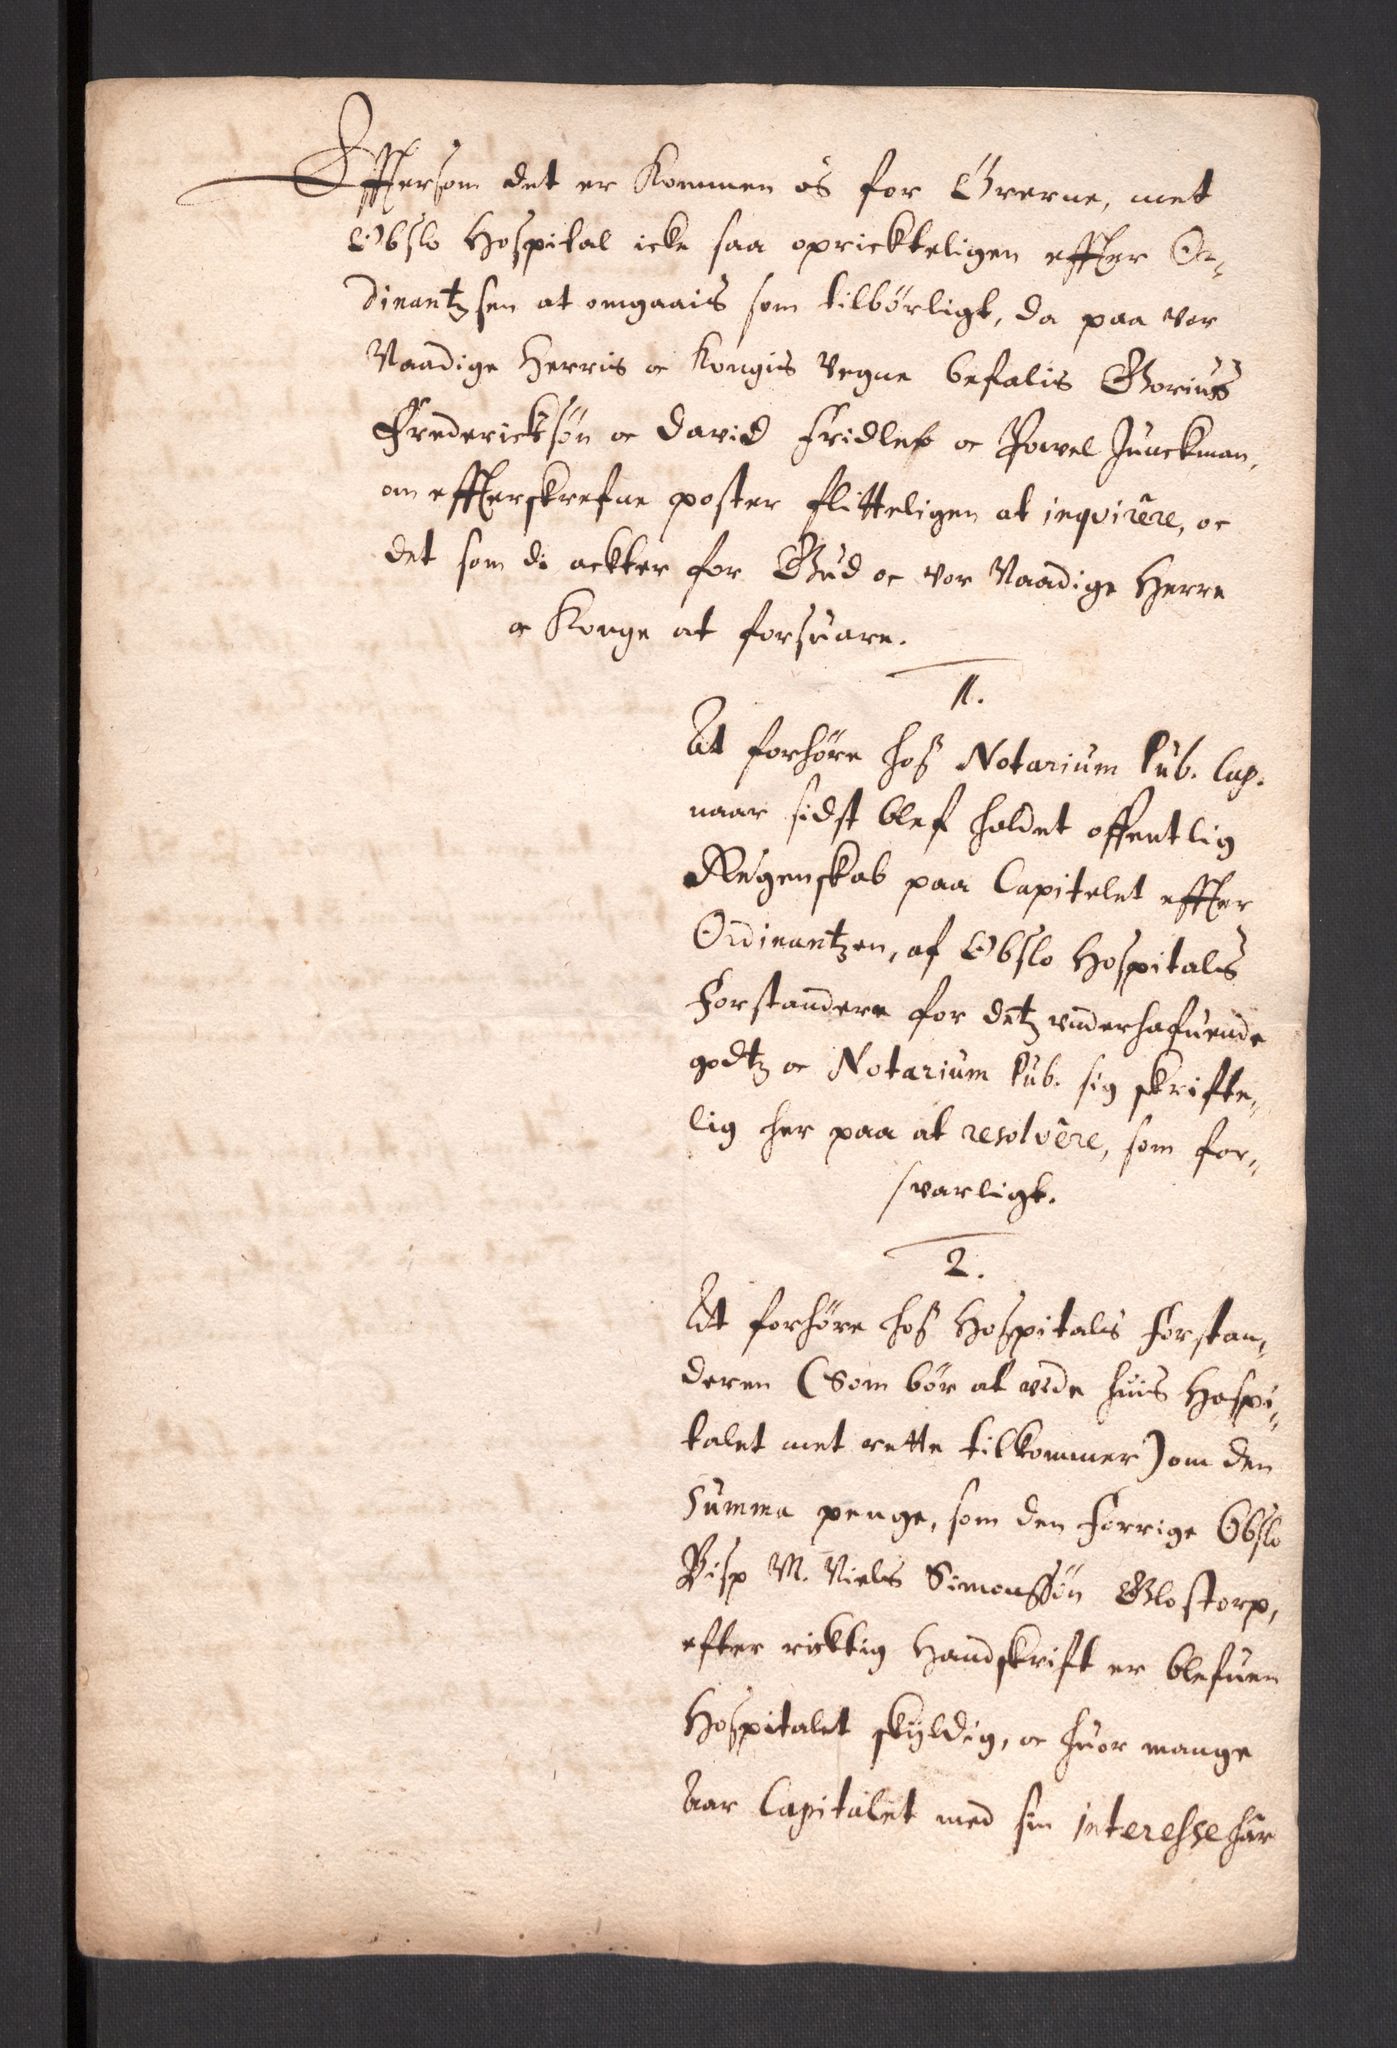 Efftersom det er kommen os for Ørerne, met
Obslo Hospital icke saa oprickteligen effter Or-
dinantzsen at omgaais som tilbørligt, da paa vor
Naadige Herris oc Kongis vegne befalis Gorius
Fredericksøn oc David Fridlef oc Powel Junckman,
om effterskrefne poster flitteligen at inqvirere, oc
det som di ackter for Gud oc vor Naadige Herre
oc Konge at forsuare.
1.
At forhøre hoß Notarium Pub. Cap.
naar sidst blef holdet offentlig
Regenskab paa Capitelet effter
Ordinantzen, af Obslo Hospitalis
Forstandere for detz vnderhafuende
godtz oc Notarium Pub. sig skrifte-
lig her paa at resolvere, som for-
svarligt.
2.
At forhøre hoß Hospitalis Forstan-
deren (som bør at vide huis Hospi-
talet met rette tilkommer) om den
Summa penge, som den forrige Obslo
Bisp M. Niels Simonssøn Glostorp,
efter ricktig Handskrift er blefuen
Hospitalet skyldig, oc huor mange
Aar Capitalet med sin interesse har